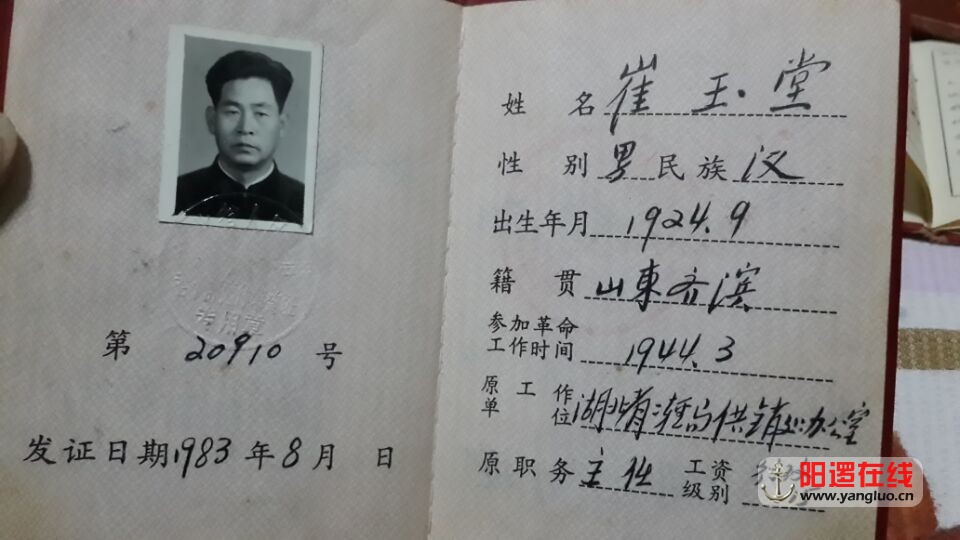 第 20910 号
发证日期1983年8月 日
姓 名 崔玉堂
性 别 男 民族 汉
出生年月 1924.9
籍 贯 山東齐滨
参加革命
工作时间 1944.3
原工作
单位 湖北省 供销 办公室
原职务 主任 工资
级别
专用章
阳逻在线
www.yangluo.cn